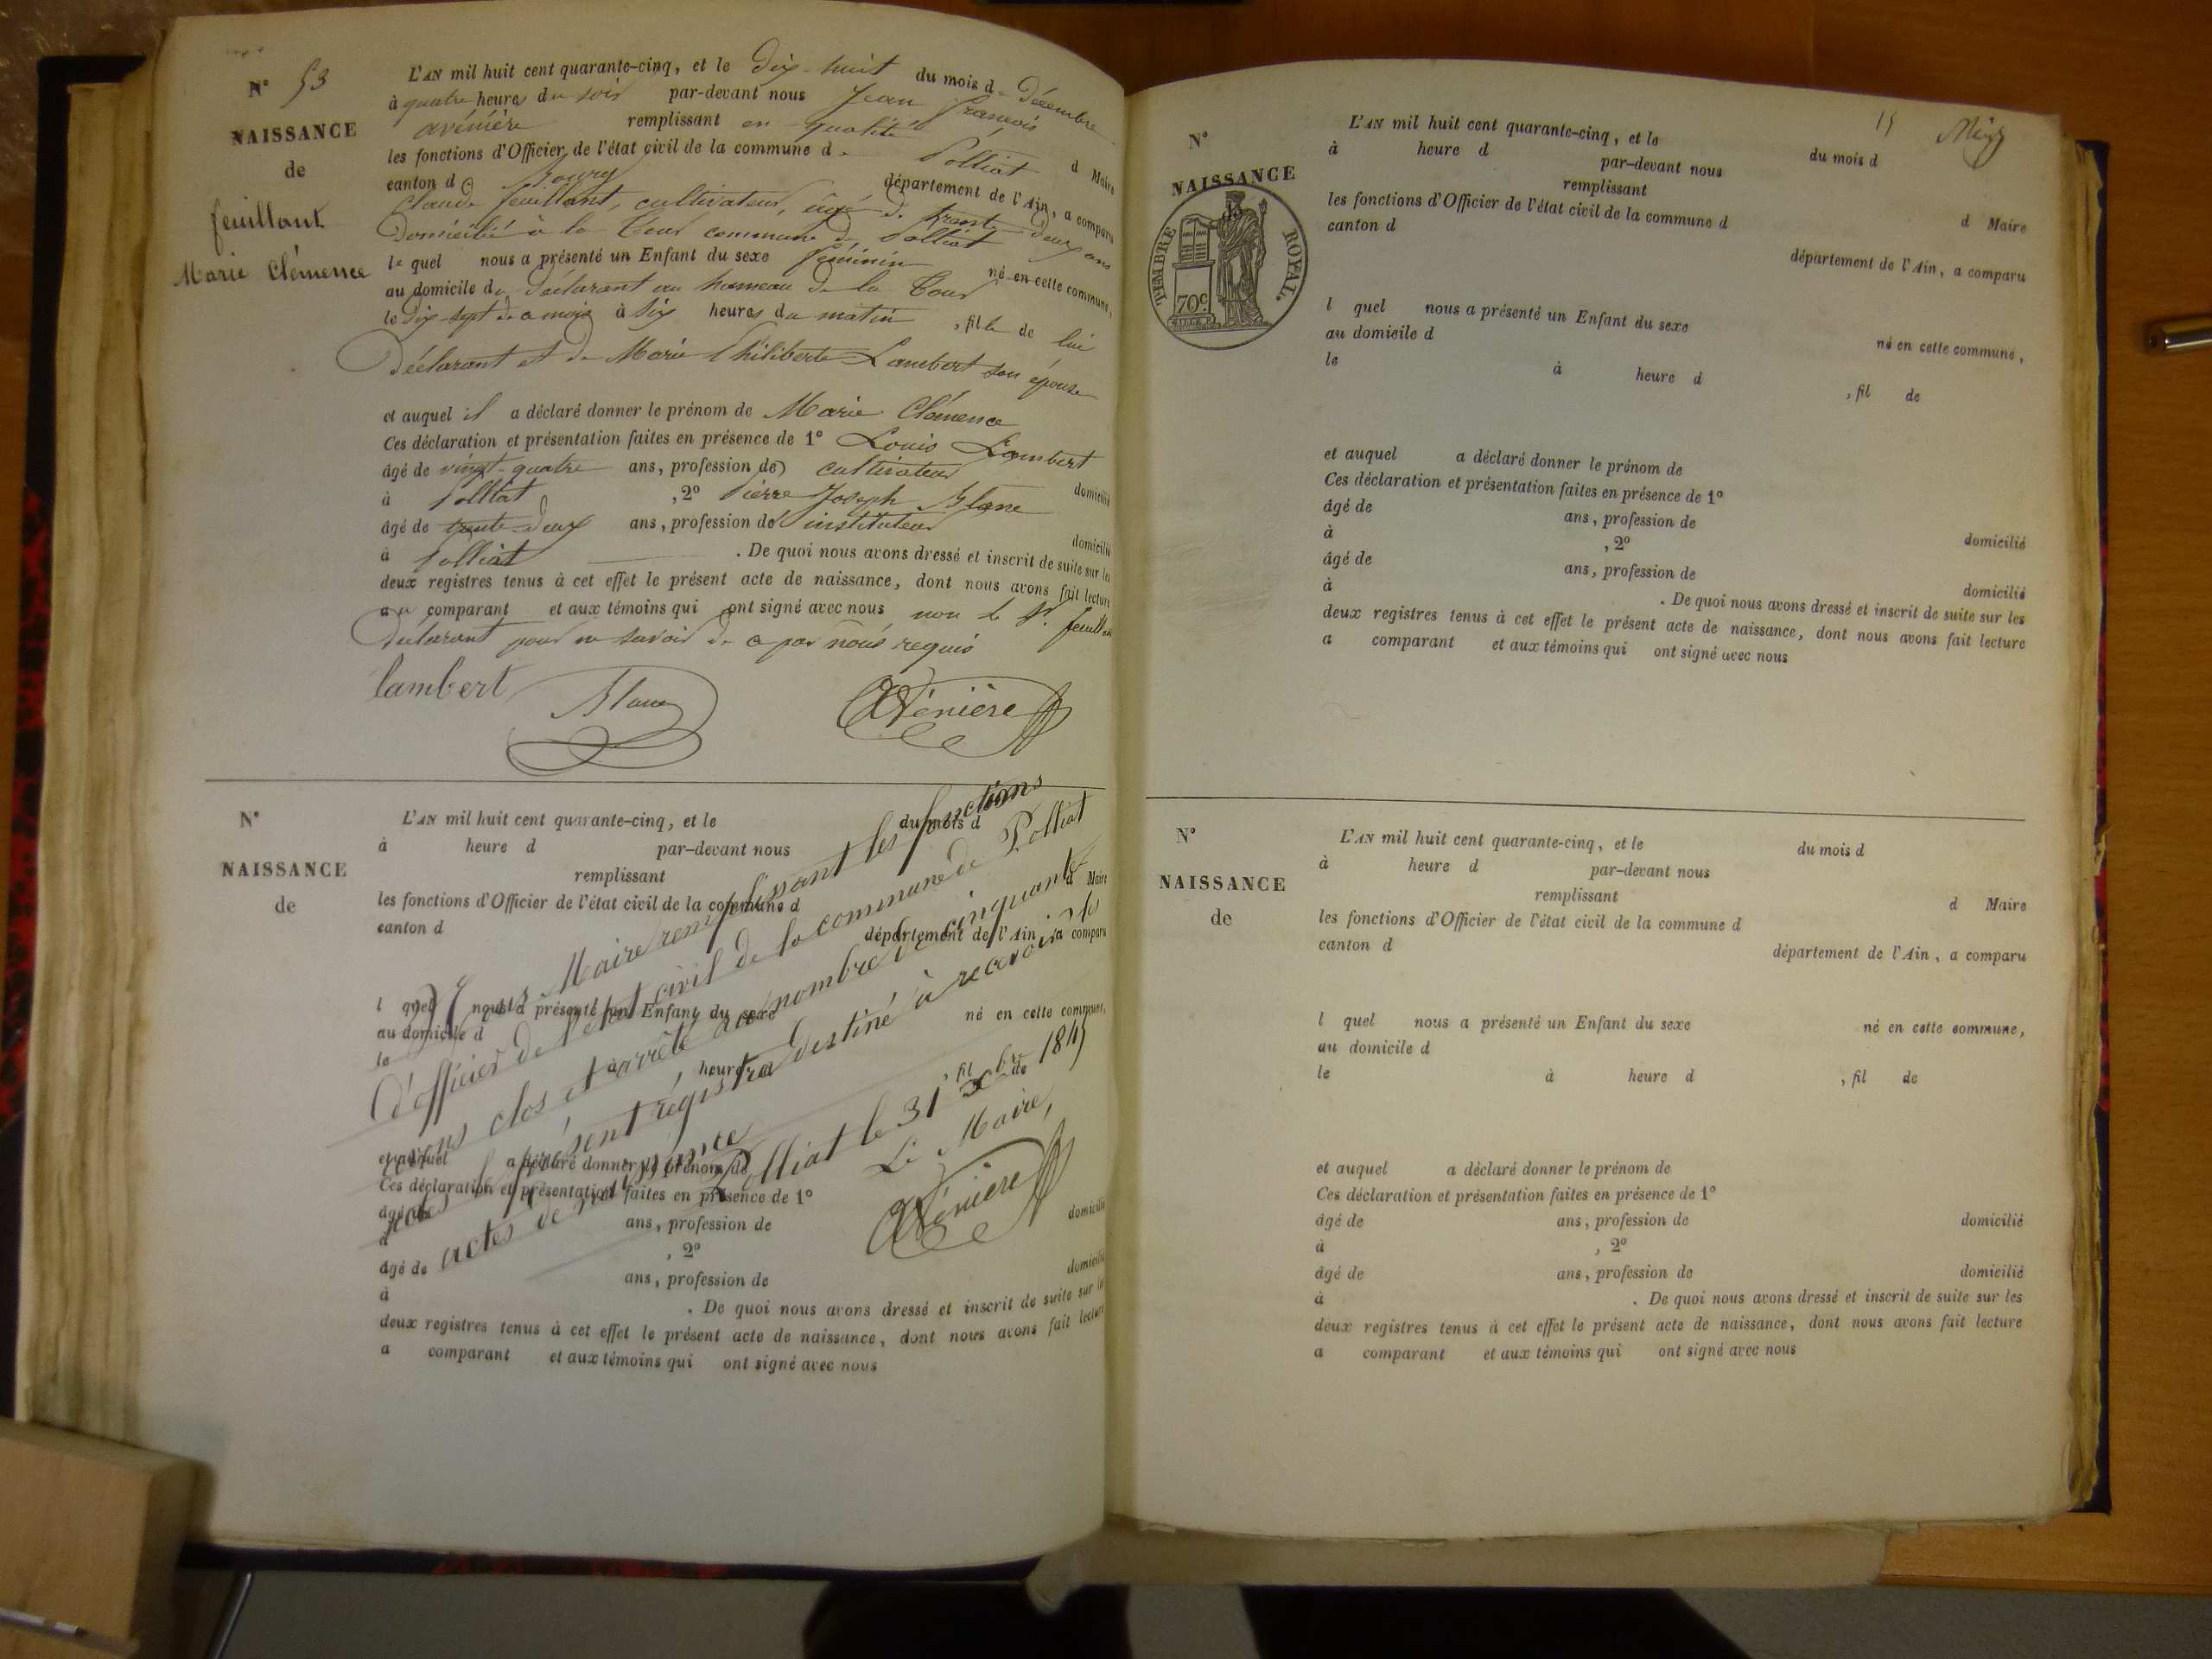 N° 53
NAISSANCE
de
feuillant
Marie Clémence
L'AN mil huit cent quarante-cinq, et le dix-huit du mois d - Décembre
à quatre heures du soir par-devant nous Jean françois
avénière remplissant en qualité d Maire
les fonctions d'Officier de l'état civil de la commune d - Polliat
canton de Bourg département de l'Ain, a comparu
Claude feuillant, cultivateur, âgé de trente deux ans
Domicilié à la Tour commune de Polliat
le quel nous a présenté un Enfant du sexe féminin né en cette commune,
au domicile du déclarant au hameau de la Tour
le dix-sept de ce mois à six heures du matin , fille de lui
Déclarant et de Marie Philiberte Lambert son épouse
et auquel il a déclaré donner le prénom de Marie Clémence
Ces déclaration et présentation faites en présence de 1° Louis Lambert
âgé de vingt-quatre ans, profession de cultivateur domicilié
à Polliat , 2° Pierre Joseph Blanc
âgé de trente-deux ans, profession de instituteur domicilié
à Polliat . De quoi nous avons dressé et inscrit de suite sur les
deux registres tenus à cet effet le présent acte de naissance, dont nous avons fait lecture
au comparant et aux témoins qui ont signé avec nous non le Sr. feuillant
Déclarant pour ne savoir de ce par nous requis
lambert Blanc Avénière
N°
NAISSANCE
de
L'AN mil huit cent quarante-cinq, et le du mois d
à heure d par-devant nous
remplissant d Maire
les fonctions d'Officier de l'état civil de la commune d
canton d département de l'Ain, a comparu
l quel nous a présenté un Enfant du sexe né en cette commune,
au domicile d
le à heure d , fil de
et auquel a déclaré donner le prénom de
Ces déclaration et présentation faites en présence de 1°
âgé de ans, profession de domicilié
à , 2°
âgé de ans, profession de domicilié
à . De quoi nous avons dressé et inscrit de suite sur les
deux registres tenus à cet effet le présent acte de naissance, dont nous avons fait lecture
a comparant et aux témoins qui ont signé avec nous
Nous Maire remplissant les fonctions
d'officier de l'état civil de la commune de Polliat
avons clos et arrêté au nombre de cinquante
actes le présent régistre destiné à recevoir les
actes de naissance
Polliat le 31 Xbre 1845
Le Maire,
Avénière
15
N°
NAISSANCE
de
TIMBRE ROYAL.
70c.
L'AN mil huit cent quarante-cinq, et le du mois d
à heure d par-devant nous
remplissant d Maire
les fonctions d'Officier de l'état civil de la commune d
canton d département de l'Ain, a comparu
l quel nous a présenté un Enfant du sexe né en cette commune,
au domicile d
le à heure d , fil de
et auquel a déclaré donner le prénom de
Ces déclaration et présentation faites en présence de 1°
âgé de ans, profession de domicilié
à , 2°
âgé de ans, profession de domicilié
à . De quoi nous avons dressé et inscrit de suite sur les
deux registres tenus à cet effet le présent acte de naissance, dont nous avons fait lecture
a comparant et aux témoins qui ont signé avec nous
N°
NAISSANCE
de
L'AN mil huit cent quarante-cinq, et le du mois d
à heure d par-devant nous
remplissant d Maire
les fonctions d'Officier de l'état civil de la commune d
canton d département de l'Ain, a comparu
l quel nous a présenté un Enfant du sexe né en cette commune,
au domicile d
le à heure d , fil de
et auquel a déclaré donner le prénom de
Ces déclaration et présentation faites en présence de 1°
âgé de ans, profession de domicilié
à , 2°
âgé de ans, profession de domicilié
à . De quoi nous avons dressé et inscrit de suite sur les
deux registres tenus à cet effet le présent acte de naissance, dont nous avons fait lecture
a comparant et aux témoins qui ont signé avec nous